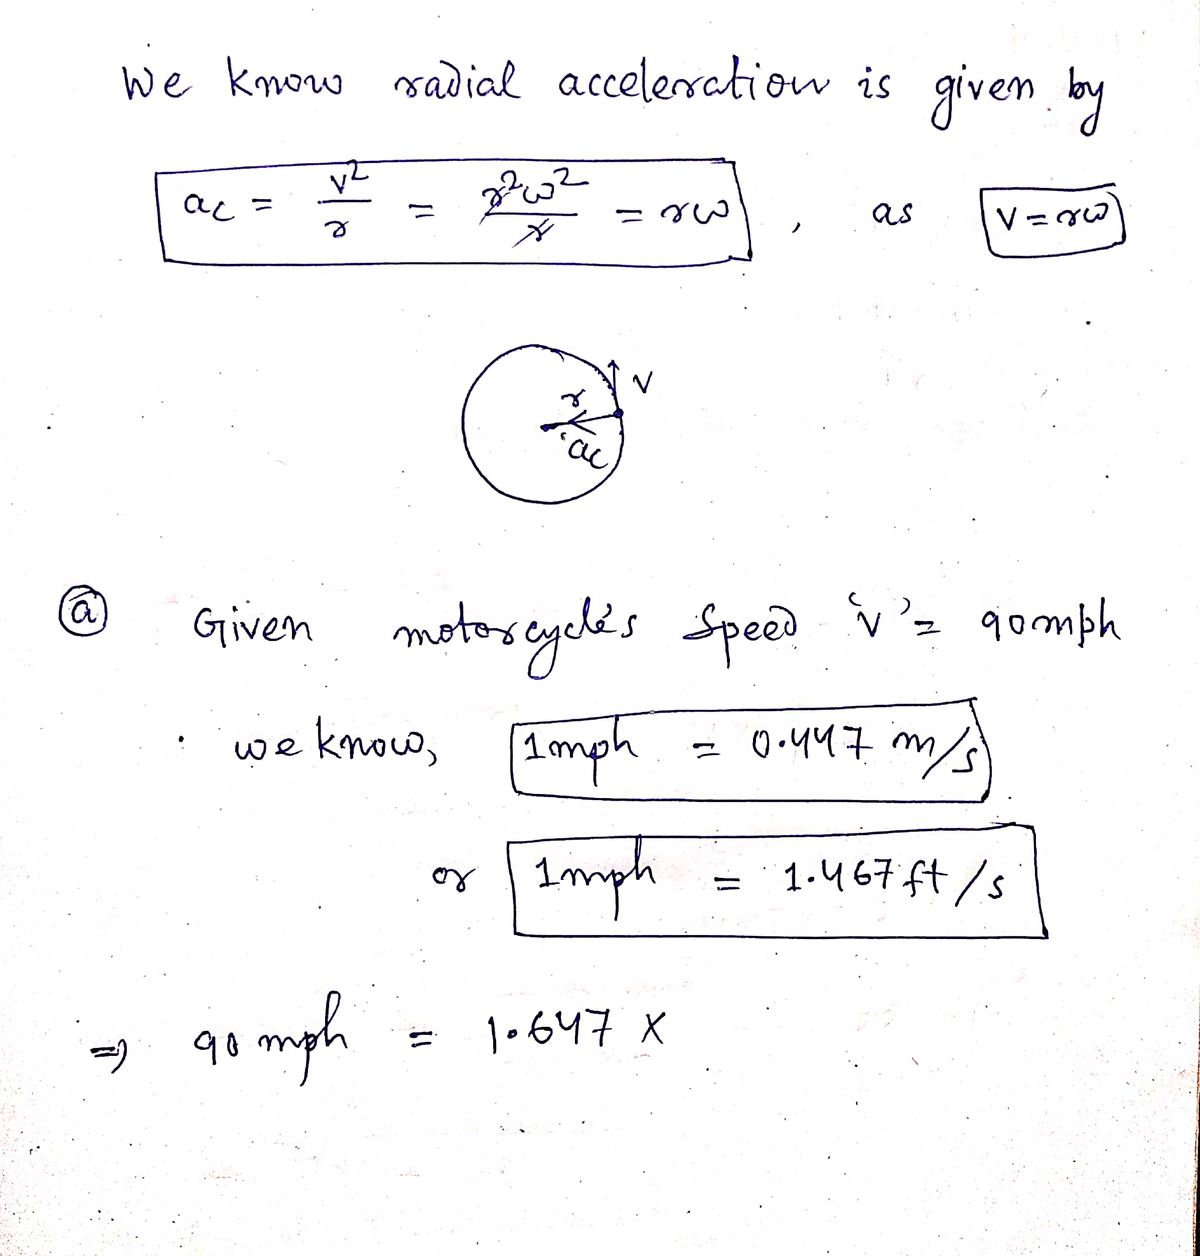 We know radial acceleration is given by
ac = v²/r = r²ω²/r = rω , as V = rω
V
r
ac
(a) Given motorcycle's speed 'v' = 90mph
we know, 1mph = 0.447 m/s
or 1mph = 1.467 ft/s
⇒ 90 mph = 1.647 ×